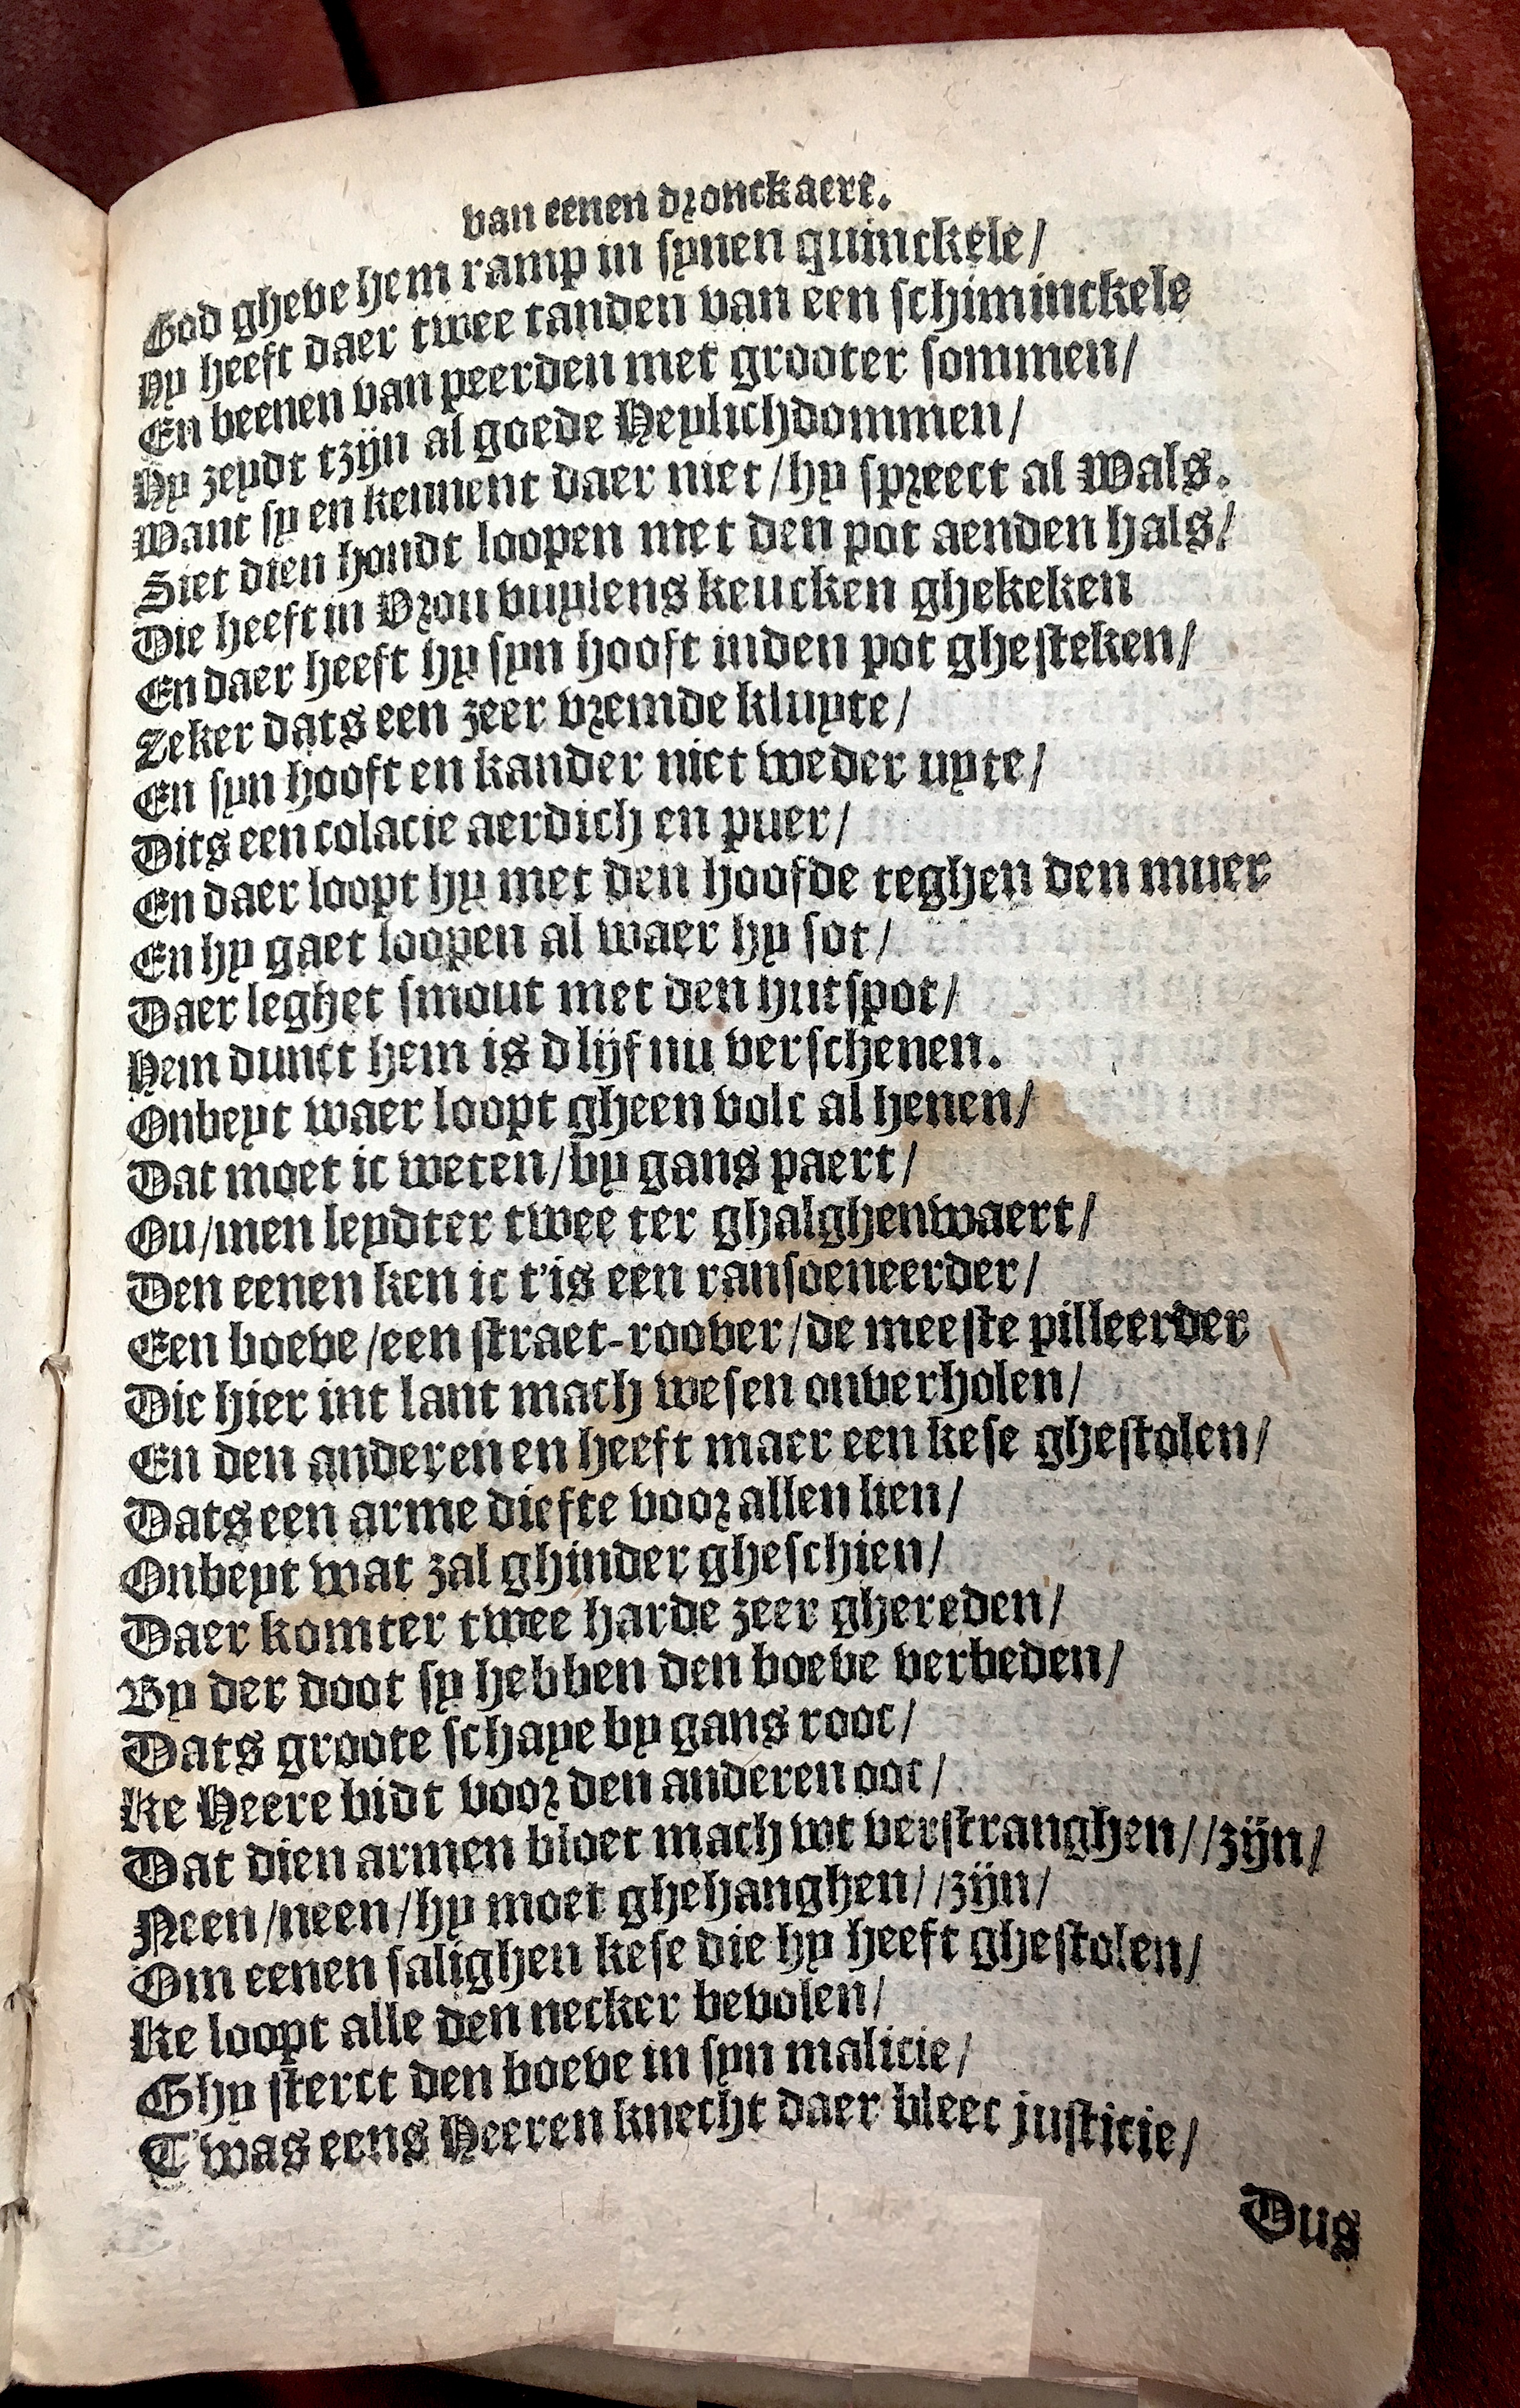 van eenen dronckaert.
God gheve hem ramp in synen quinckele/
Hy heeft daer twee tanden van een schiminckele
En beenen van peerden met grooter sommen/
Hy zeydt tzijn al goede Heylichdommen/
Want sy en kennent daer niet/hy spreect al Wals.
Siet dien hondt loopen met den pot aenden hals/
Die heeft in Vrou vuylens keucken ghekeken
En daer heeft hy syn hooft inden pot ghesteken/
Zeker dats een zeer vremde kluyte/
En syn hooft en kander niet weder uyte/
Dits een colacie aerdich en puer/
En daer loopt hy met den hoofde teghen den muer
En hy gaet loopen al waer hy sot/
Daer leghet smout met den hutspot/
Hem dunct hem is d lijf nu verschenen.
Onbeyt waer loopt gheen volc al henen/
Dat moet ic weten/by gans paert/
Ou/men leydter twee ter ghalghenwaert/
Den eenen ken ic t'is een ransoeneerder/
Een boeve/een straet-roover/de meeste pilleerder
Die hier int lant mach wesen onverholen/
En den anderen en heeft maer een kese ghestolen/
Dats een arme diefte voor allen lien/
Onbeyt wat zal ghinder gheschien/
Daer komter twee harde zeer ghereden/
By der doot sy hebben den boeve verbeden/
Dats groote schaye by gans rooc/
Ke Heere bidt voor den anderen ooc/
Dat dien armen bloet mach wt verstranghen//zijn/
Neen/neen/hy moet ghehanghen//zijn/
Om eenen salighen kese die hy heeft ghestolen/
Ke loopt alle den necker bevolen/
Ghy sterct den boeve in syn malicie/
T'was eens Heeren knecht daer bleec justicie/
Dus